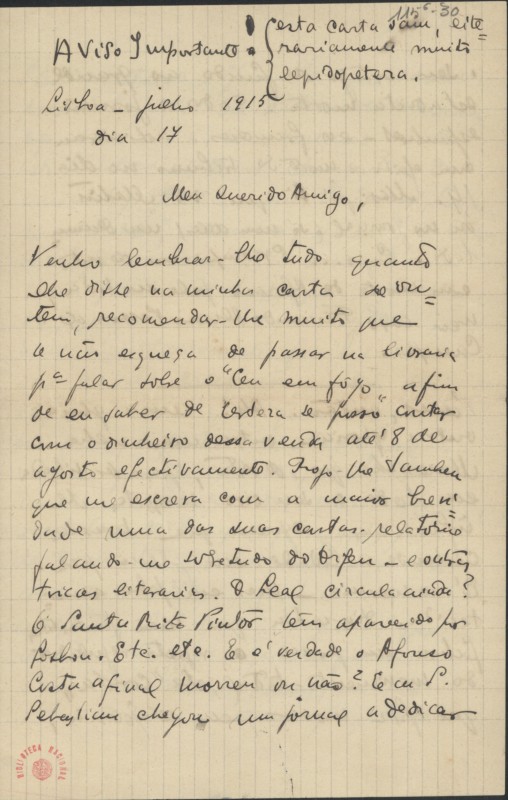 115⁶-30
Aviso Importante! { esta carta vai, lite=
rariamente muito
lepidoptera.
Lisboa - julho 1915
dia 17
Meu Querido Amigo,
Venho lembrar-lhe tudo quanto
lhe disse na minha carta de on=
tem, recomendar-lhe muito que
se não esqueça de passar na livraria
pª falar sobre o "Ceu em fôgo" afim
de eu saber de certeza se posso contar
com o dinheiro dessa venda até 8 de
agosto efectivamente. Rogo-lhe tambem
que me escreva com a maior brevi=
dade uma das suas cartas-relatorio
falando-me sobretudo do Orfeu - e outras
tricas literarias. O Leal circula ainda?
O Santa Rita Pintor tem aparecido por
Lisboa. Etc. etc. E é verdade o Afonso
Costa afinal morreu ou não? Em S.
Sebastian chegou um jornal a dedicar
BIBLIOTECA NACIONAL